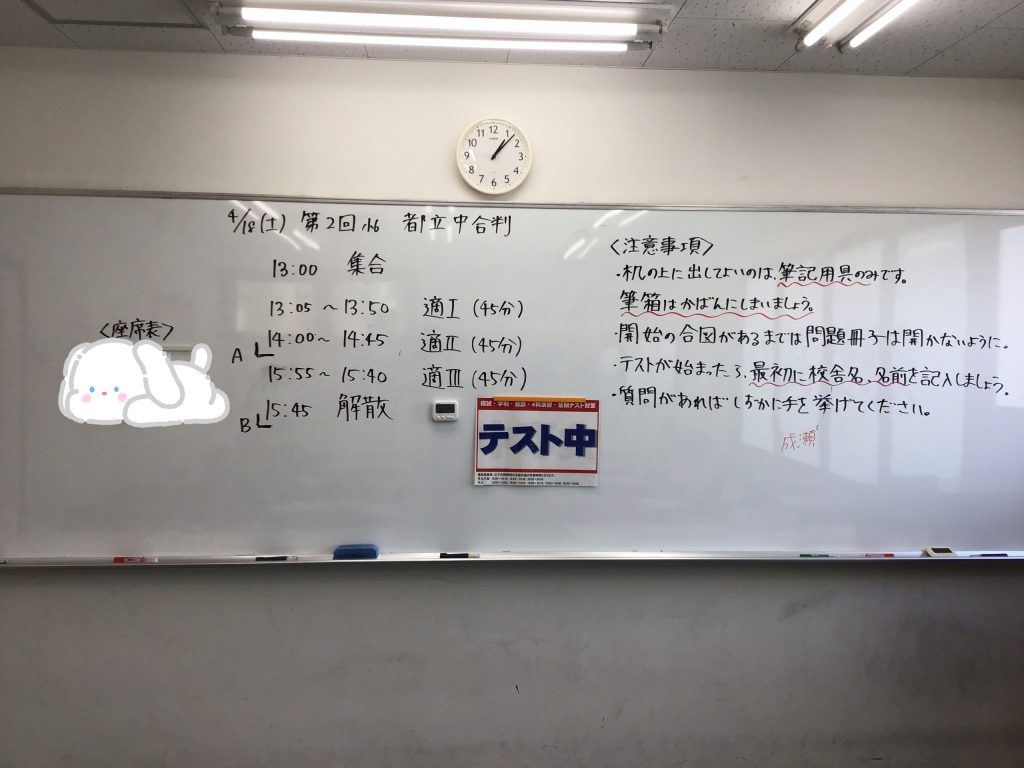 4/18(土) 第2回 小6 都立中合判
13:00 集合
13:05～13:50 適Ⅰ(45分)
A
14:00～14:45 適Ⅱ(45分)
15:55～15:40 適Ⅲ(45分)
B
15:45 解散
<座席表>
<注意事項>
・机の上に出してよいのは、筆記用具のみです。
筆箱はかばんにしまいましょう。
・開始の合図があるまでは問題冊子は開かないように。
・テストが始まったら、最初に校舎名、名前を記入しましょう。
・質問があればしずかに手を挙げてください。
成瀬
テスト中
12
1
2
3
4
5
6
7
8
9
10
11